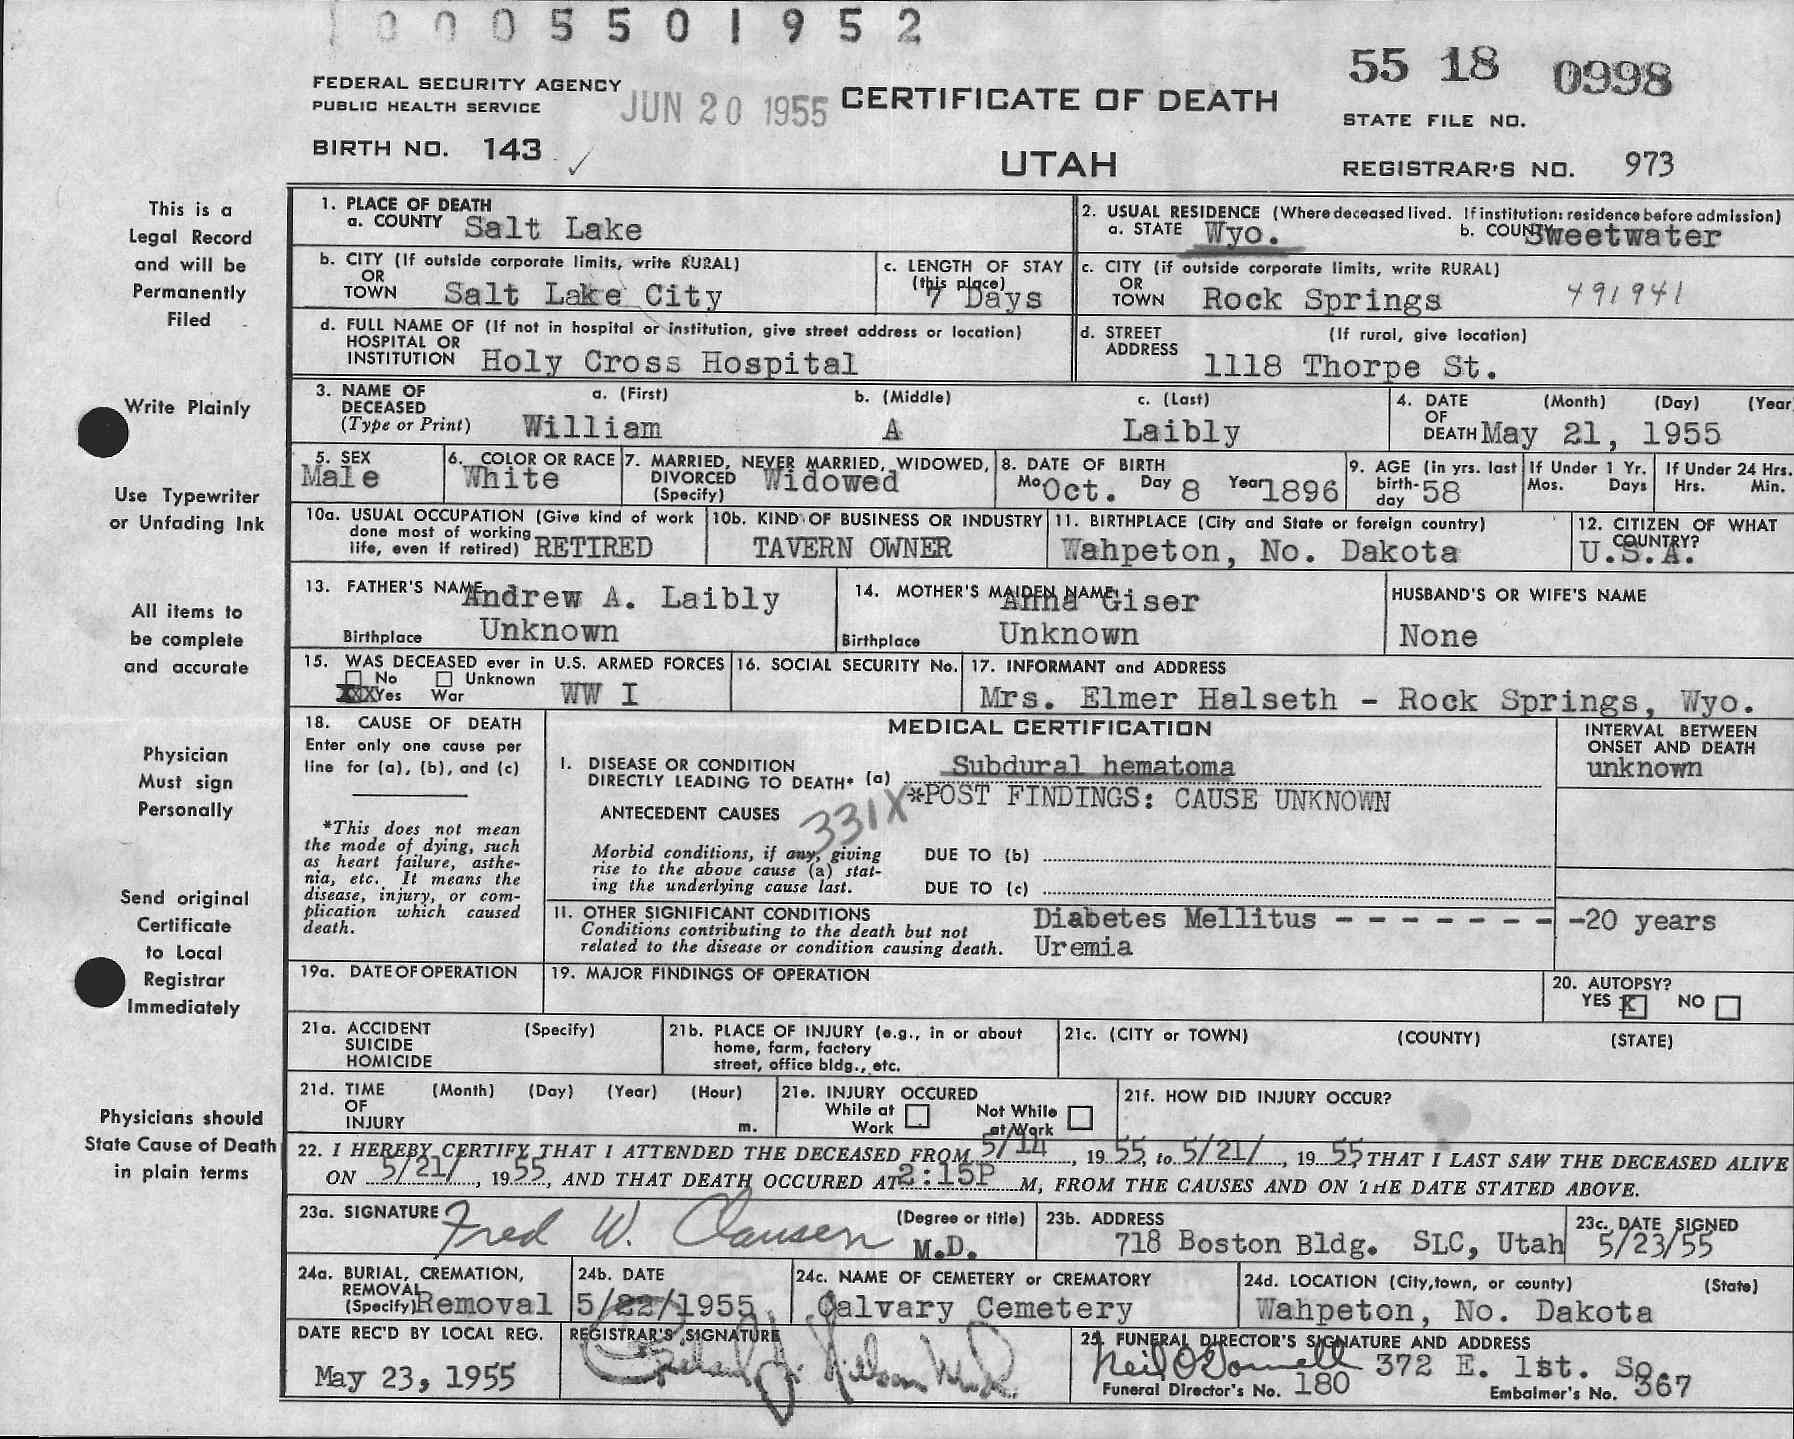 10005501952
55 18 0998
FEDERAL SECURITY AGENCY
PUBLIC HEALTH SERVICE
JUN 20 1955
CERTIFICATE OF DEATH
STATE FILE NO.
BIRTH NO. 143 ✓
UTAH
REGISTRAR'S NO. 973
This is a
Legal Record
and will be
Permanently
Filed
Write Plainly
Use Typewriter
or Unfading Ink
All items to
be complete
and accurate
Physician
Must sign
Personally
Send original
Certificate
to Local
Registrar
Immediately
Physicians should
State Cause of Death
in plain terms
1. PLACE OF DEATH
a. COUNTY Salt Lake
2. USUAL RESIDENCE (Where deceased lived. If institution: residence before admission)
a. STATE Wyo. b. COUNTY Sweetwater
b. CITY (If outside corporate limits, write RURAL)
OR
TOWN Salt Lake City
c. LENGTH OF STAY
(this place)
7 Days
c. CITY (if outside corporate limits, write RURAL)
OR
TOWN Rock Springs 491941
d. FULL NAME OF (If not in hospital or institution, give street address or location)
HOSPITAL OR
INSTITUTION Holy Cross Hospital
d. STREET (If rural, give location)
ADDRESS 1118 Thorpe St.
3. NAME OF
DECEASED
(Type or Print)
a. (First) b. (Middle) c. (Last)
William A Laibly
4. DATE (Month) (Day) (Year
OF
DEATH May 21, 1955
5. SEX
Male
6. COLOR OR RACE
White
7. MARRIED, NEVER MARRIED, WIDOWED,
DIVORCED
(Specify) Widowed
8. DATE OF BIRTH
Mo Oct. Day 8 Year 1896
9. AGE (in yrs. last
birth-
day 58
If Under 1 Yr.
Mos. Days
If Under 24 Hrs.
Hrs. Min.
10a. USUAL OCCUPATION (Give kind of work
done most of working
life, even if retired) RETIRED
10b. KIND OF BUSINESS OR INDUSTRY
TAVERN OWNER
11. BIRTHPLACE (City and State or foreign country)
Wahpeton, No. Dakota
12. CITIZEN OF WHAT
COUNTRY?
U.S.A.
13. FATHER'S NAME Andrew A. Laibly
Birthplace Unknown
14. MOTHER'S MAIDEN NAME Anna Giser
Birthplace Unknown
HUSBAND'S OR WIFE'S NAME
None
15. WAS DECEASED ever in U.S. ARMED FORCES
No Unknown
XXX Yes War WW I
16. SOCIAL SECURITY No.
17. INFORMANT and ADDRESS
Mrs. Elmer Halseth - Rock Springs, Wyo.
18. CAUSE OF DEATH
Enter only one cause per
line for (a), (b), and (c)
*This does not mean
the mode of dying, such
as heart failure, asthe-
nia, etc. It means the
disease, injury, or com-
plication which caused
death.
MEDICAL CERTIFICATION
INTERVAL BETWEEN
ONSET AND DEATH
unknown
I. DISEASE OR CONDITION
DIRECTLY LEADING TO DEATH* (a) Subdural hematoma
*POST FINDINGS: CAUSE UNKNOWN
ANTECEDENT CAUSES 331X
Morbid conditions, if any, giving
rise to the above cause (a) stat-
ing the underlying cause last.
DUE TO (b)
DUE TO (c)
II. OTHER SIGNIFICANT CONDITIONS
Conditions contributing to the death but not
related to the disease or condition causing death.
Diabetes Mellitus - - - - - - - -20 years
Uremia
19a. DATE OF OPERATION
19. MAJOR FINDINGS OF OPERATION
20. AUTOPSY?
YES X NO
21a. ACCIDENT (Specify)
SUICIDE
HOMICIDE
21b. PLACE OF INJURY (e.g., in or about
home, farm, factory
street, office bldg., etc.
21c. (CITY or TOWN) (COUNTY) (STATE)
21d. TIME (Month) (Day) (Year) (Hour)
OF
INJURY m.
21e. INJURY OCCURED
While at
Work
Not While
at Work
21f. HOW DID INJURY OCCUR?
22. I HEREBY CERTIFY THAT I ATTENDED THE DECEASED FROM 5/14, 1955, to 5/21/, 1955, THAT I LAST SAW THE DECEASED ALIVE
ON 5/21/, 1955, AND THAT DEATH OCCURED AT 2:15P M, FROM THE CAUSES AND ON THE DATE STATED ABOVE.
23a. SIGNATURE Fred W. Clausen (Degree or title)
M.D.
23b. ADDRESS
718 Boston Bldg. SLC, Utah
23c. DATE SIGNED
5/23/55
24a. BURIAL, CREMATION,
REMOVAL
(Specify) Removal
24b. DATE
5/22/1955
24c. NAME OF CEMETERY or CREMATORY
Calvary Cemetery
24d. LOCATION (City, town, or county) (State)
Wahpeton, No. Dakota
DATE REC'D BY LOCAL REG.
May 23, 1955
REGISTRAR'S SIGNATURE
25. FUNERAL DIRECTOR'S SIGNATURE AND ADDRESS
Neil O'Donnell 372 E. 1st. So.
Funeral Director's No. 180 Embalmer's No. 367